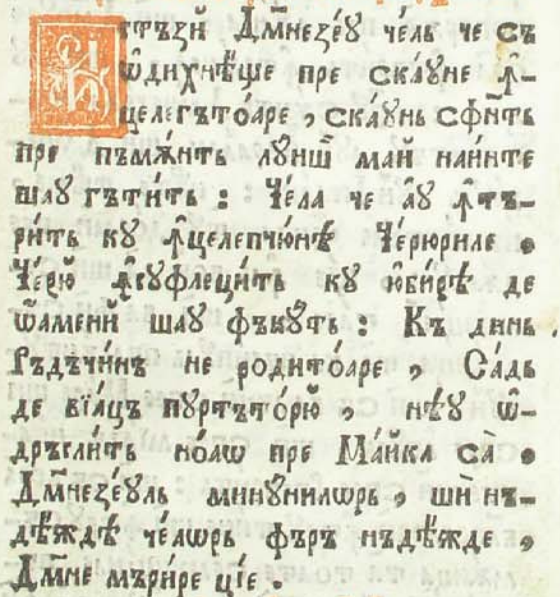 Астъзй Дм҃незеꙋ чѐль че съ
ѡ҆дихнѣ́ще пре ска́ꙋне ꙟ҆-
целегъто́аре , ска́ꙋнь сфи́нть
пре пъмѫ́нть лꙋ́иш май наи́нте
шаꙋ гъти́ть : Че́ла че а҆ꙋ ꙟ҆тъ-
ри́ть кꙋ ꙟ҆целепчю́нѣ Че́рюриле .
Че́рю ꙟ҆сꙋфлеци́ть кꙋ ю҆би́рѣ де
ѡ҆а́мени шаꙋ фъкꙋ́ть : Къ динь
Ръдъчи́нъ не родито́аре , Са́дь
де вїа́цъ пꙋртъто́рю , нѣ́ꙋ ѡ҆-
дръсли́ть но́аѡ пре Ма́йка са̀ .
Дм҃незе́ꙋль минꙋ́нилѡрь , шѝ нъ-
дѣ́ждѣ че́лѡрь фъръ нъдѣ́жде ,
Дм҃не мъри́ре цїе .